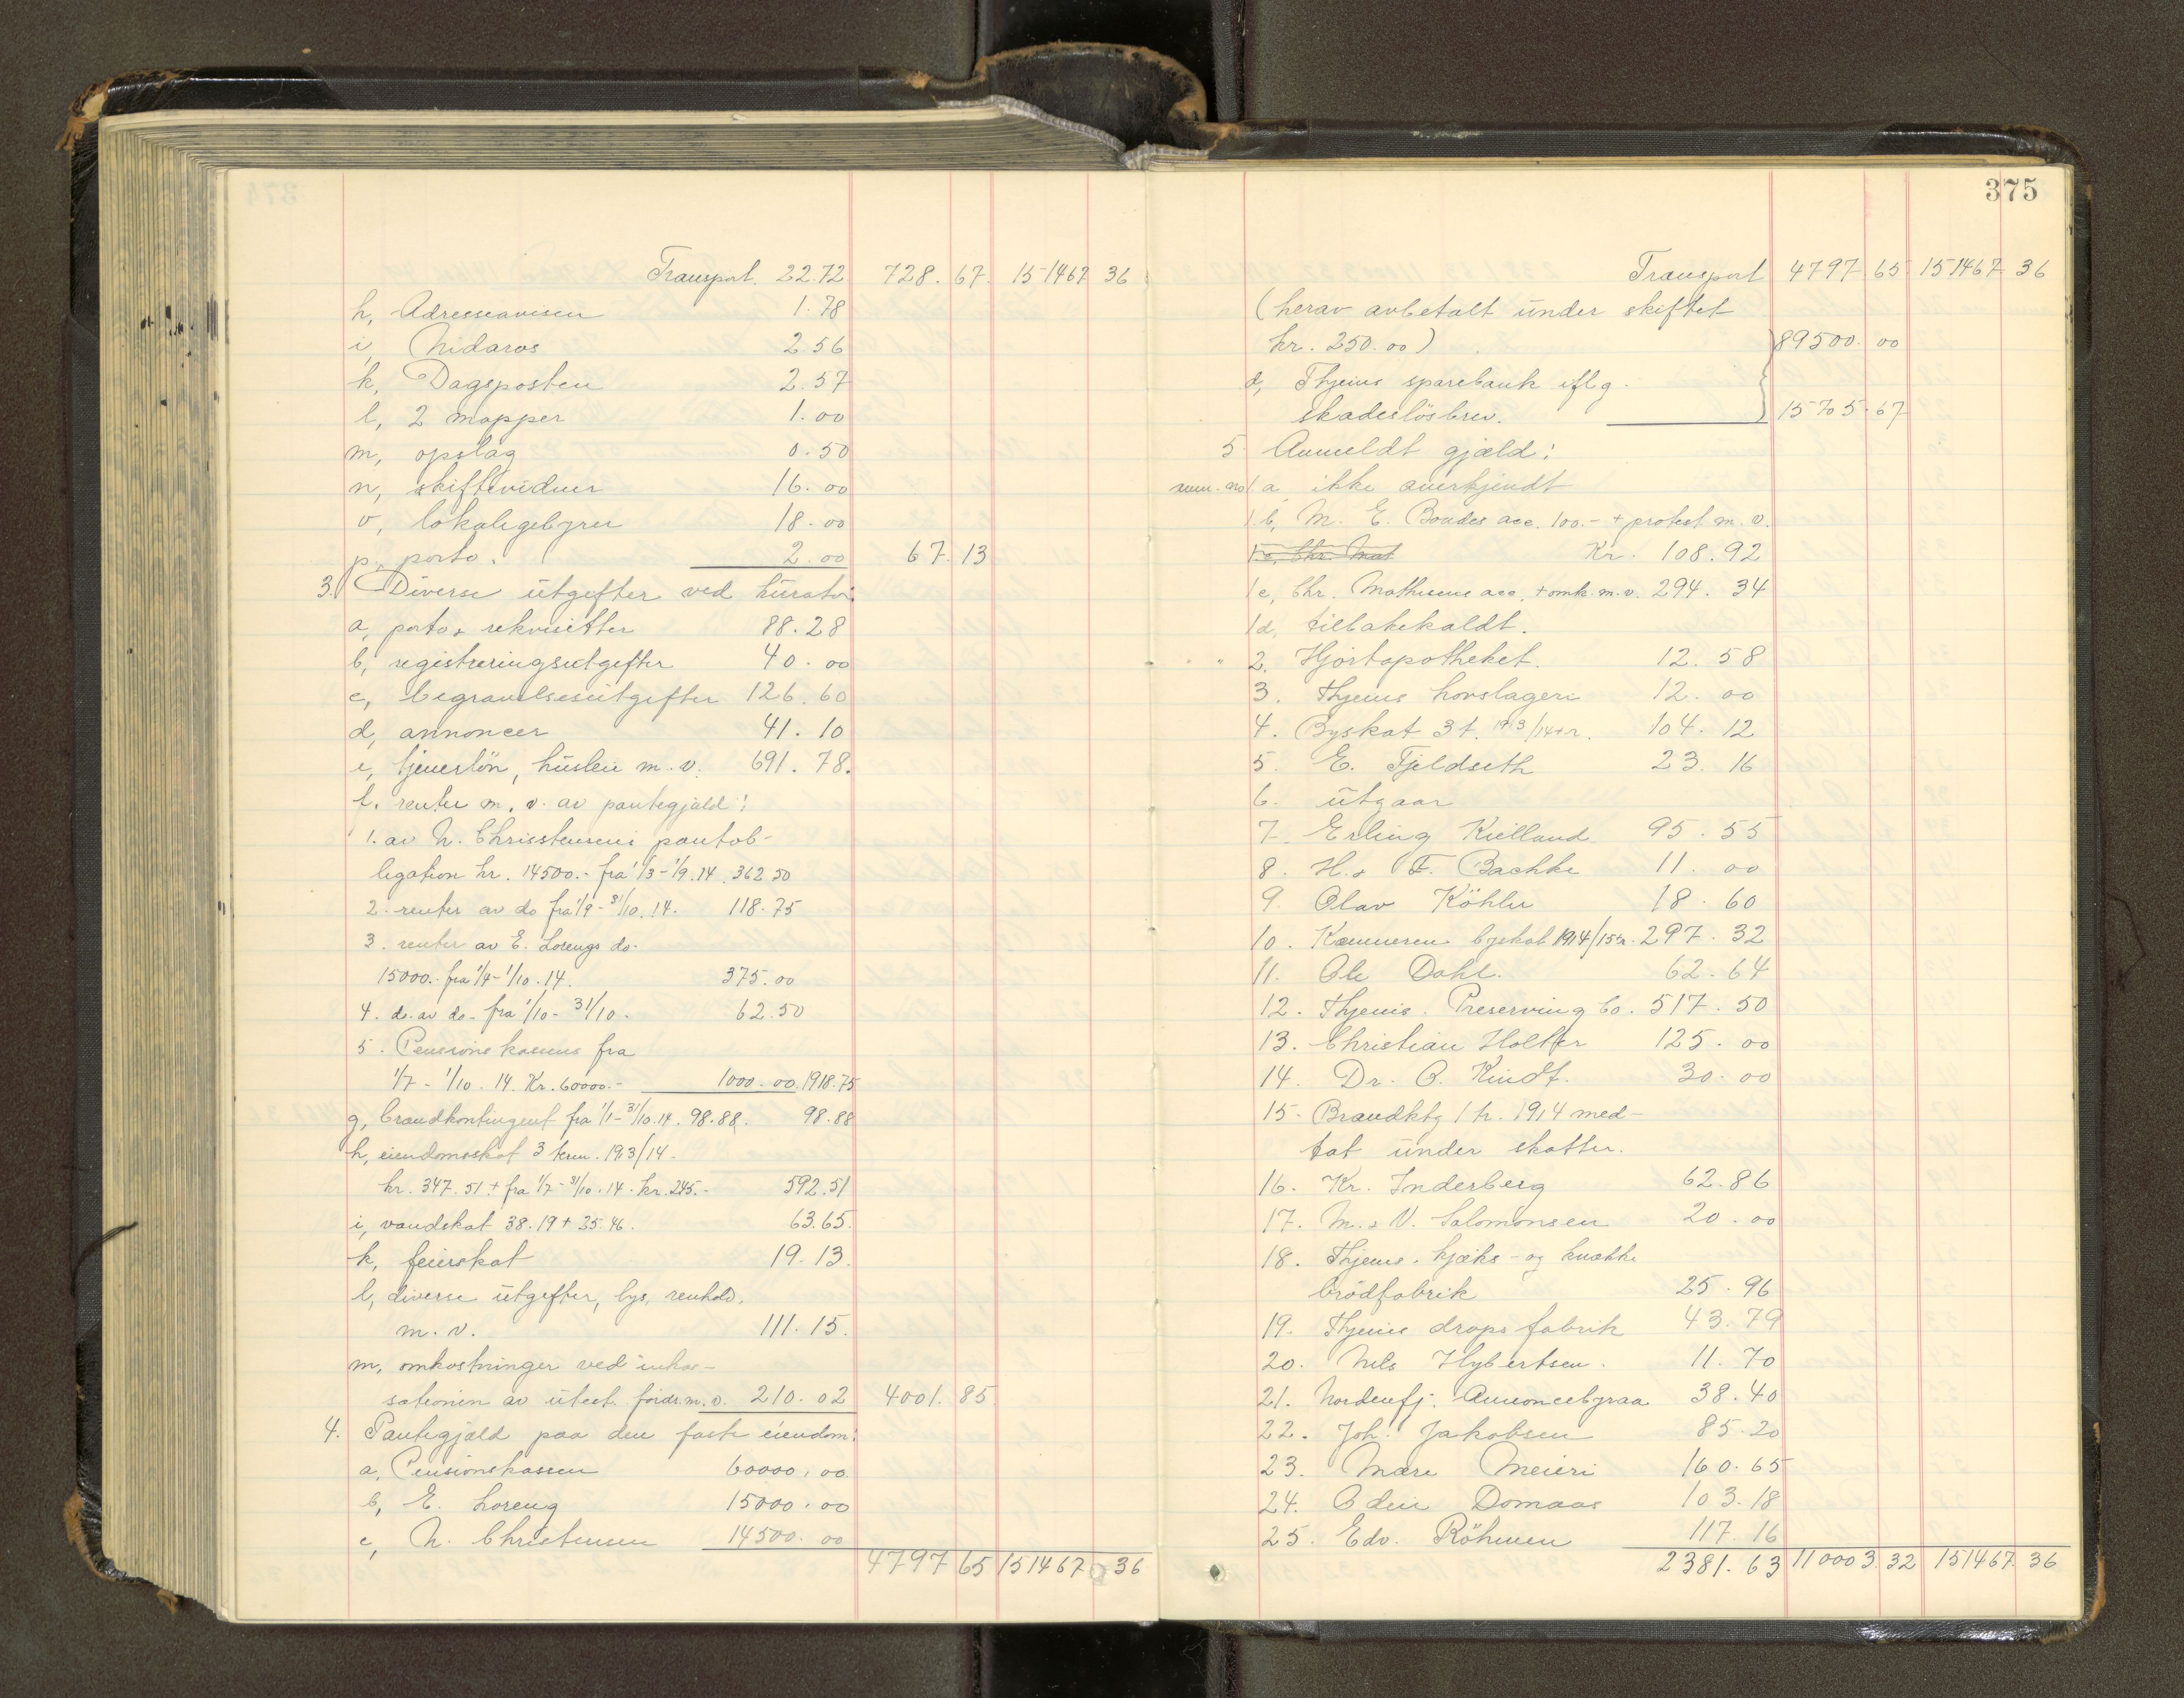 Transport. 22.72 728.67. 151467 36
h, Adresseavisen 1.78
i, Nidaros 2.56
k, Dagsposten 2.57
l, 2 mapper 1.00
m, opslag 0.50
n, skiftevidner 16.00
o, lokalegebyrer 18.00
p. porto. 2.00 67.13
3. Diverse utgifter ved kurator:
a, porto & rekvisitter 88.28
b, registreringsutgifter 40.00
c, begravelsesutgifter 126.60
d, annoncer 41.10
e, tjenerlön, husleie m.v. 691.78.
f. renter m.v. av pantegjæld:
1. av N. Chrisstensens pantob-
ligation kr. 14500.- fra 1/3-1/9.14. 362 50
2. renter av do fra 1/9-31/10.14. 118.75
3. renter av E. Lorengs do.
15000.- fra 1/4-1/10.14. 375.00
4. do. av do. fra 1/10-31/10. 62.50
5. Pensionskassens fra
1/7-1/10.14. Kr. 60000.- 1000.00. 1918.75
g, brandkontingent fra 1/1-31/10.14. 98.88. 98.88
h, eiendomsskat 3 term. 1913/14.
kr. 347.51 + fra 1/7-31/10.14. kr. 245.- 592.51
i, vandskat 38.19 + 25.46. 63.65.
k, feierskat 19.13.
l, diverse utgifter, lys, renhold,
m.v. 111.15.
m, omkostninger ved inkas-
sationen av utest. fordr. m.v. 210.02 4001.85
4. Pantegjæld paa den faste eiendom:
a, Pensionskassen 60000.00.
b, E. Loreng 15000.00
c, N. Christensen 14500.00
4797 65 151467 36
375
Transport 4797 65 151467 36
(herav avbetalt under skiftet
kr. 250.00) 89500.00
d, Thjems sparebank iflg.
skadeslösbrev. 15705.67
5. Anmeldt gjæld:
anm. no 1 a ikke anerkjendt
1 b, M. E. Bondes acc. 100.- + protest m.v.
1 c, Chr. Mat Kr. 108.92
1 c, Chr. Mathisens acc. + omk. m.v. 294.34
1 d, tilbakekaldt.
" " 2. Hjortapotheket. 12.58
3. Thjems hovslageri 12.00
4. Byskat 3 t. 1913/14 + r. 104.12
5. E. Fjeldseth 23.16
6. utgaar
7. Erling Kielland 95.55
8. H. & F. Bachke 11.00
9. Olav Köhler 18.60
10. Kæmneren byskat 1914/15 tr. 297.32
11. Ole Dahl. 62.64
12. Thjems. Preserving Co. 517.50
13. Christian Holtter 125.00
14. Dr. O. Kindt. 30.00
15. Brandktg 1 h. 1914 med-
tat under skatter.
16. Kr. Inderberg 62.86
17. M. & V. Salomonsen 20.00
18. Thjems. kjæks- og knække
brödfabrik 25.96
19. Thjems dropsfabrik 43.79
20. Nils Hybertsen. 11.70
21. Nordenfj. Annoncebyraa 38.40
22. Joh. Jakobsen 85.20
23. Mære Meieri 160.65
24. Odin Domaas 103.18
25. Edv. Röhmen 117.16
2381.63 110003.32 151467.36